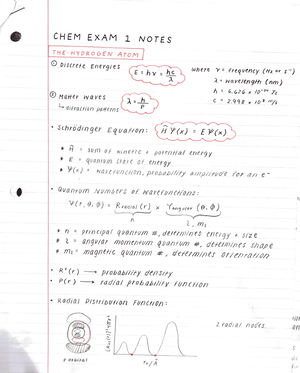 CHEM EXAM 1 NOTES
THE HYDROGEN ATOM
① Discrete Energies E = hν = hc/λ where ν = frequency (Hz or s⁻¹)
λ = wavelength (nm)
h = 6.626 × 10⁻³⁴ Js
c = 2.998 × 10⁸ m/s
② Matter Waves λ = h/p
↳ diffraction patterns
• Schrödinger Equation: Ĥ Ψ(x) = E Ψ(x)
* Ĥ = sum of kinetic + potential energy
* E = quantum state of energy
* Ψ(x) = wavefunction, probability amplitude for an e⁻
• Quantum Numbers of Wavefunctions:
Ψ(r, θ, φ) = Rradial(r) × Yangular(θ, φ)
n l, ml
* n = principal quantum #, determines energy + size
* l = angular momentum quantum #, determines shape
* ml = magnetic quantum #, determines orientation
• R²(r) → probability density
• P(r) → radial probability function
• Radial Distribution Function:
2 radial nodes